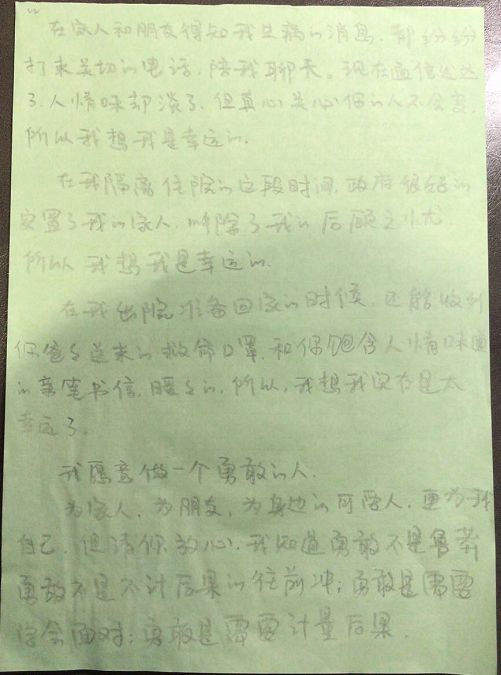 在家人和朋友得知我生病的消息,都纷纷
打来关切的电话,陪我聊天。现在通信发达
了,人情味却淡了,但真心关心你的人不会变,
所以我想我是幸运的.
在我隔离住院的这段时间,政府很好的
安置了我的家人,解除了我的后顾之忧.
所以我想我是幸运的.
在我出院准备回家的时候,还能收到
你爸爸送来的救命口罩,和你饱含人情味道
的亲笔书信,暖暖的,所以,我想我实在是太
幸运了.
我愿意做一个勇敢的人.
为家人,为朋友,为身边的所有人,更为我
自己,但请你放心,我知道勇敢不是鲁莽
勇敢不是不计后果的往前冲;勇敢是需要
学会面对;勇敢是需要计量后果.